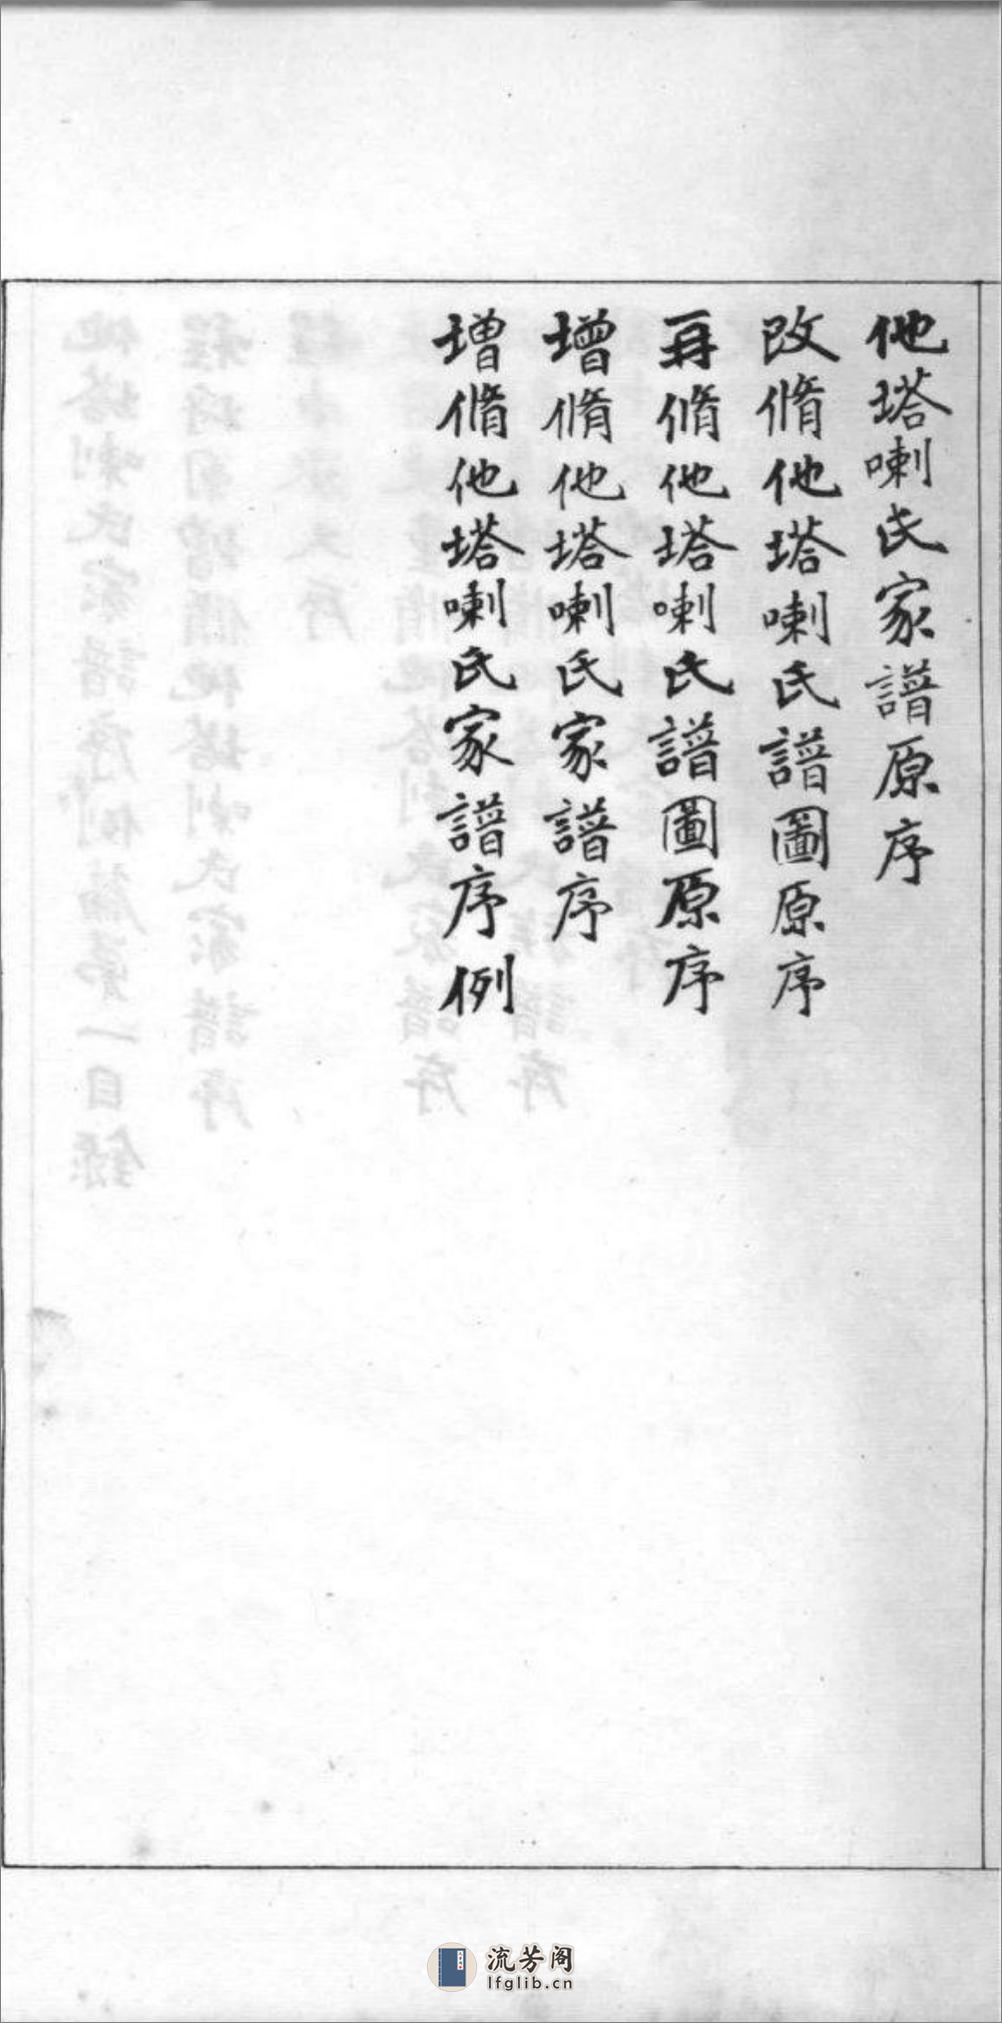 他塔喇氏家譜原序
改脩他塔喇氏譜圖原序
再脩他塔喇氏譜圖原序
增脩他塔喇氏家譜序
增脩他塔喇氏家譜序例
流芳阁
lfglib.cn